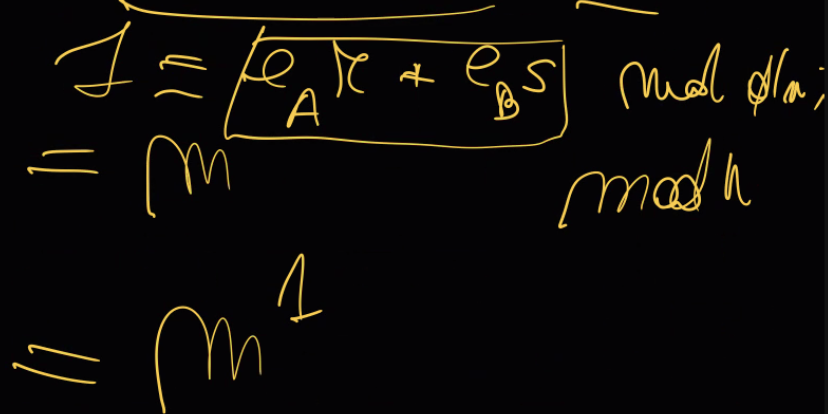 1 ≡ e_A r + e_B s mod φ(n);
= m mod n
= m^1